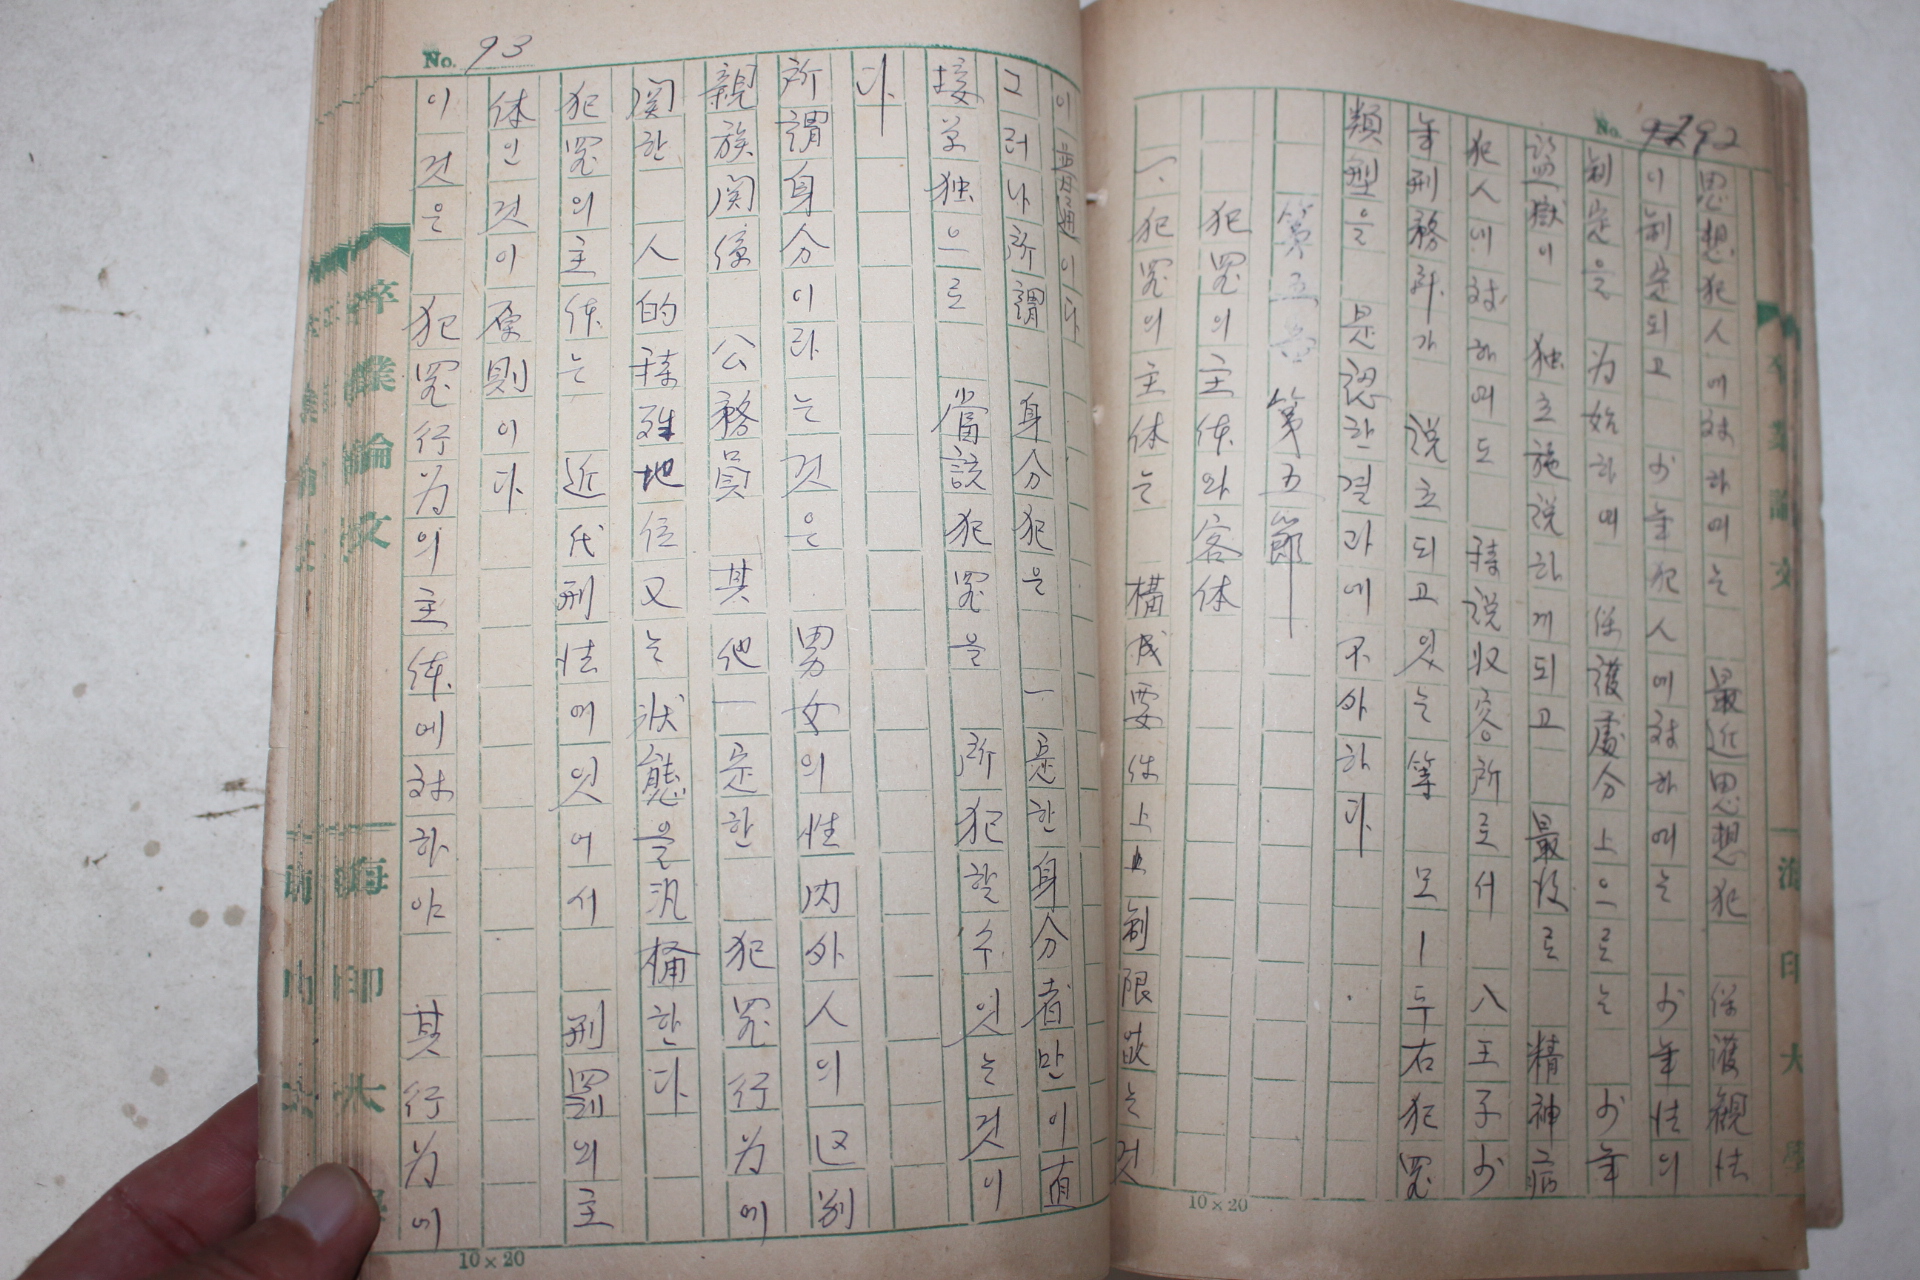 No. 92
思想犯人에 対하여는 最近 思想犯 保護観法
이 制定되고 少年犯人에 対하여는 少年法의
制定을 为始하여 保護處分上으로는 少年
監獄이 独立施設하게 되고 最後로 精神病
犯人에 対하여도 特設収容所로서 八王子少
年刑務所가 設立되고 있는 等 모ㅣ두 右犯罪
類型을 是認한 결과에 不外하다.
第五節
犯罪의 主体와 客体
一、犯罪의 主体는 構成要件上 制限없는 것
10×20
No. 93
이 普通이다
그러나 所謂 身分犯은 一定한 身分者만이 直
接 单独으로 當該犯罪을 所犯할 수 잇는 것이
다.
所謂 身分이라는 것은 男女의 性 内外人의 区別
親族関係 公務員 其他 一定한 犯罪行为에
関한 人的 特殊地位 又는 狀態을 汎稱한다.
犯罪의 主体는 近代刑法에 잇어서 刑罰의 主
体인 것이 原則이다.
이것은 犯罪行为의 主体에 対하야 其行为에
10×20
卒業論文